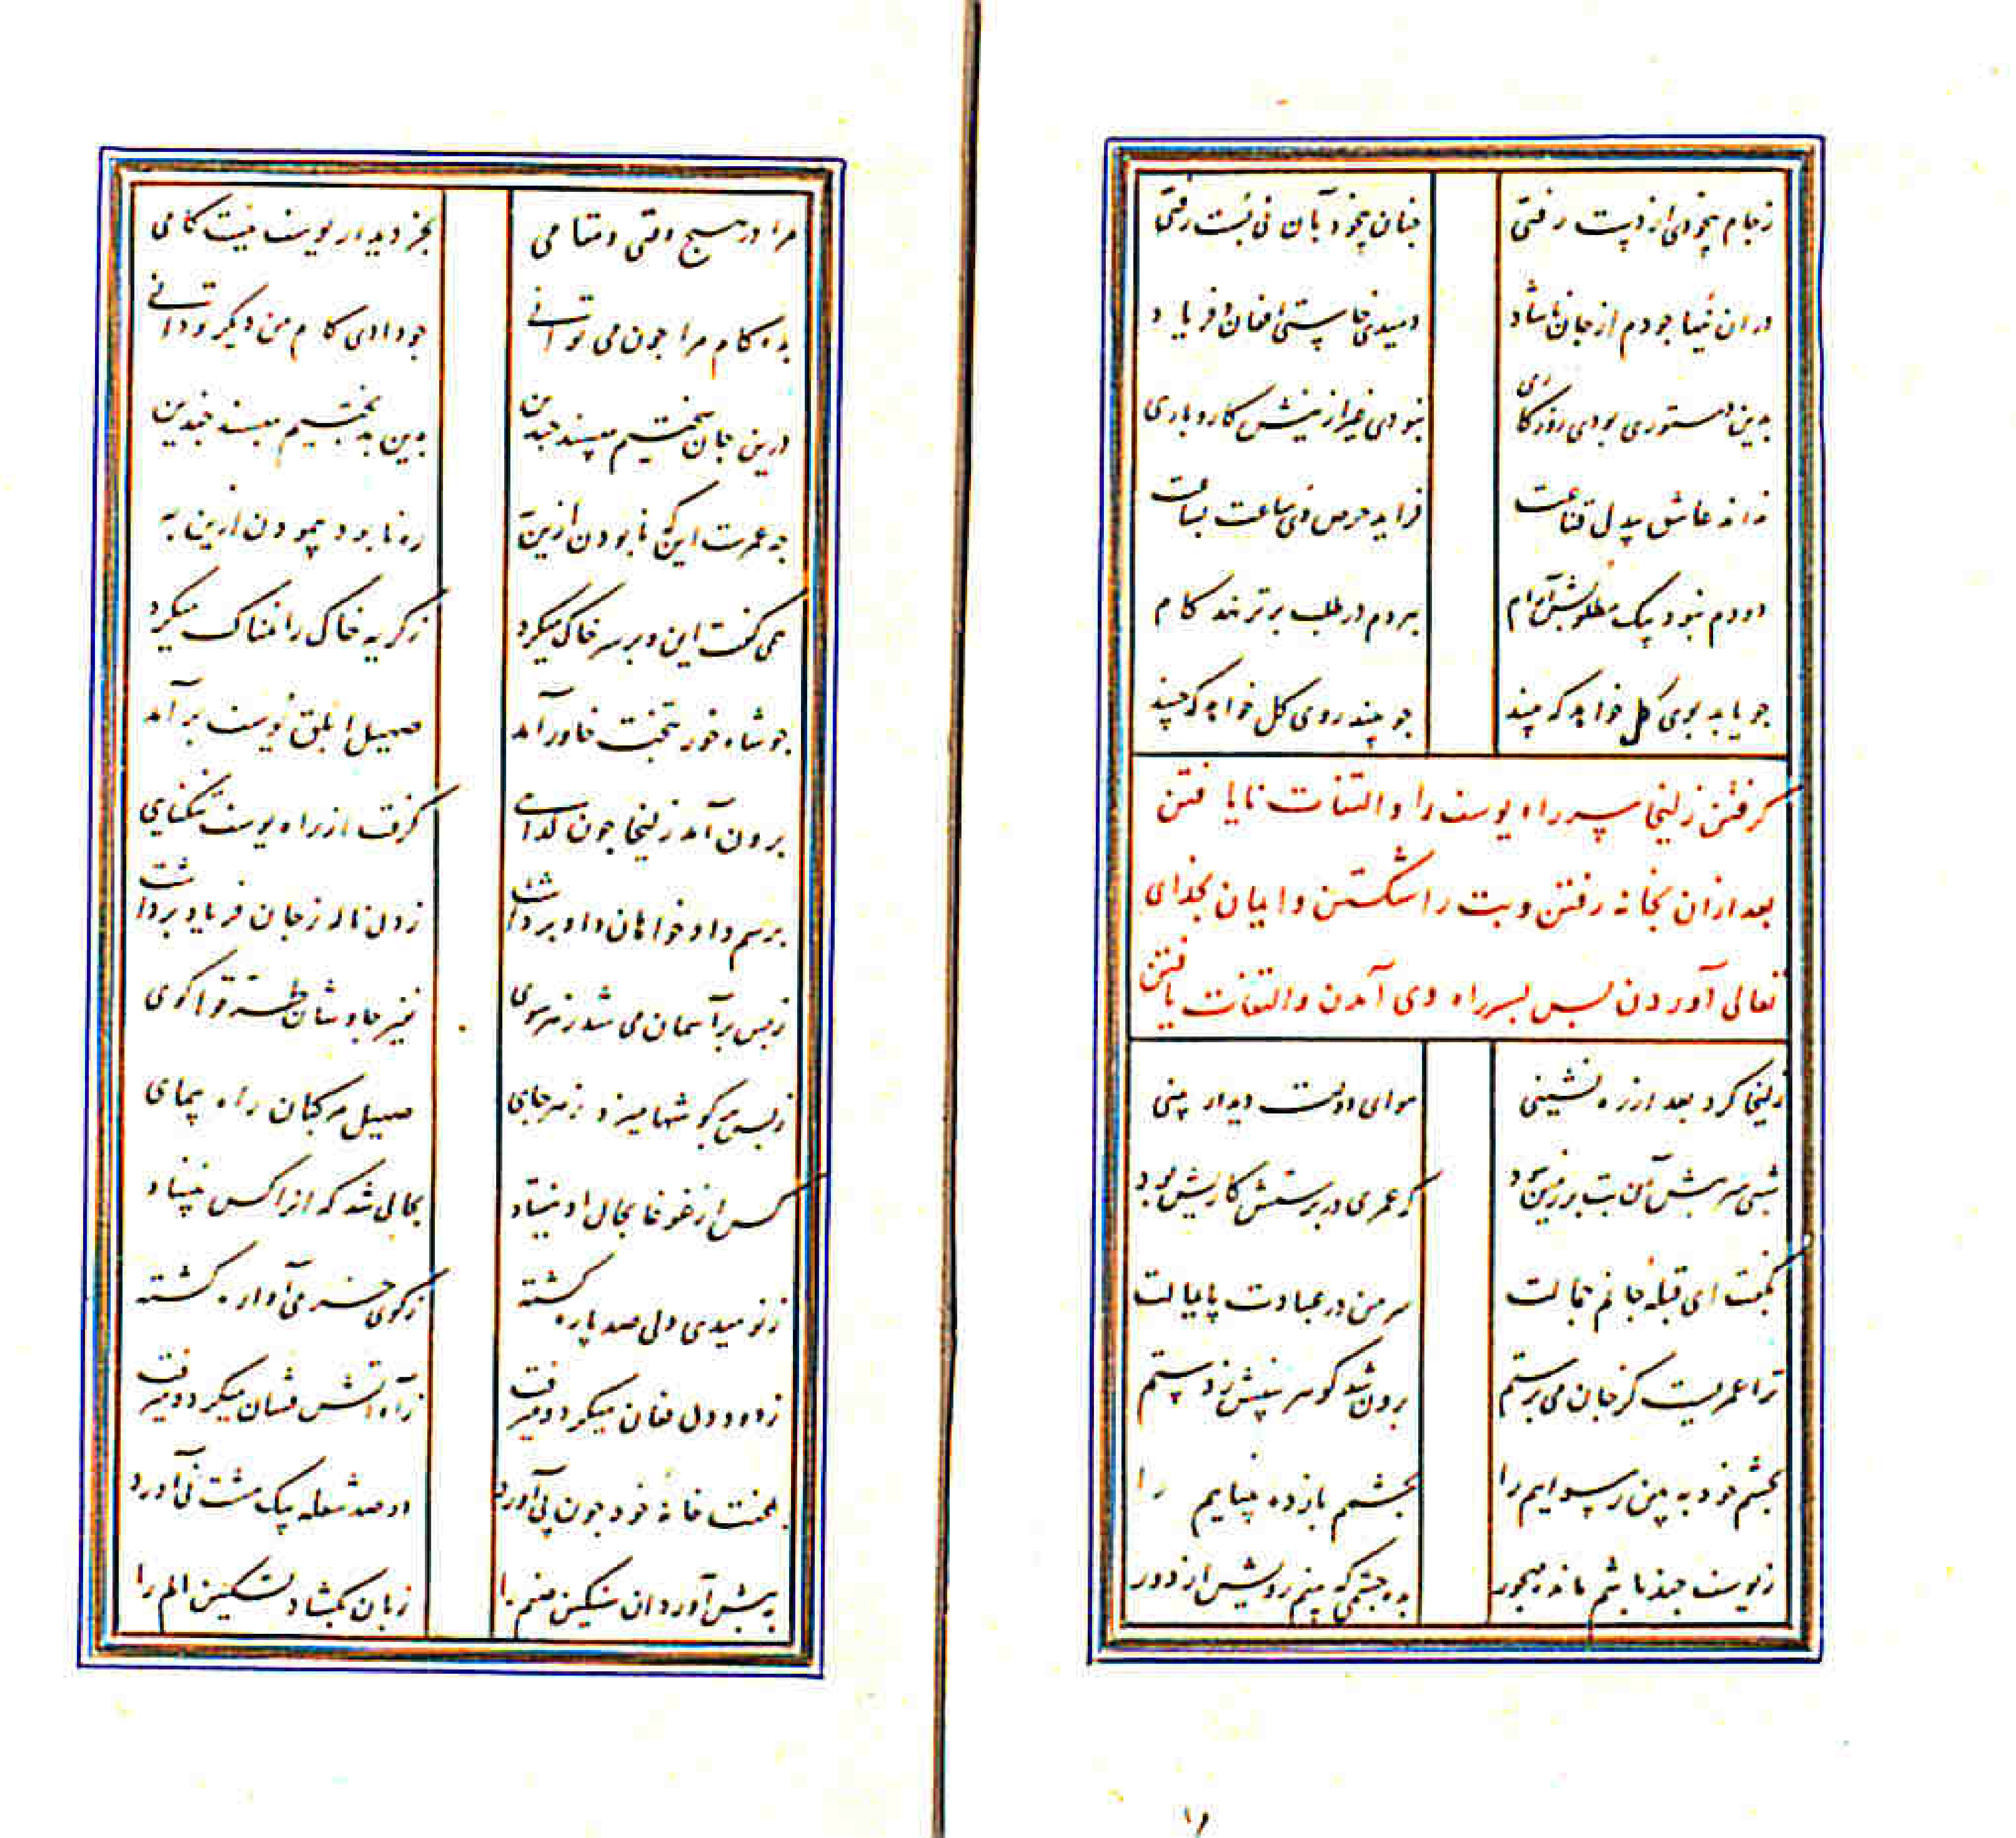 ز جام بیخودی از دست رفتی چنان بیخود آبان نی بست رفتی
دران نیها چو دم از جان ناشاد دمیدی خاستی افغان و فریاد
بدین دستوری بودی روزکاری نبودی غیر ازینش کار و باری
نداند عاشق بیدل قناعت فزاید حرص وی ساعت بساعت
دو دم نبود بیک مطلوبش آرام بهر دم در طلب برتر نهد کام
چو یابد بوی کل خواهد که بیند چو بیند روی کل خواهد که چیند
کرفتن زلیخا سر راه یوسف را و التفات نایافتن
بعد ازان بخانه رفتن و بت را شکستن و ایمان بخدای
تعالی آوردن پس بسر راه وی آمدن و التفات یافتن
زلیخا کرد بعد از ره نشینی هوای دولت دیدار بینی
شبی سر پیش آن بت بر زمین سود که عمری در پرستش کاریش بود
بکفت ای قبله جانم جمالت سر من در عبادت پایمالت
ترا عمریست کز جان می پرستم برون شد کوهر بینش ز دستم
بچشم خود ببین رسواییم را بچشمم باز ده بیناییم را
ز یوسف چند باشم مانده مهجور بده چشمی که بینم رویش از دور
مرا در هیچ وقتی و مقامی بجز دیدار یوسف نیست کامی
بده کام مرا چون می توانی چو دادی کام من دیکر تو دانی
درین جان سختیم مپسند چندین بدین بدبختیم مپسند چندین
چه عمرست اینکه نابودن ازین به ره نابود پیمودن ازین به
همی کفت این و بر سر خاک میکرد ز کریه خاک را نمناک میکرد
چو شاه خور بتخت خاور آمد صهیل ابلق یوسف بر آمد
برون آمد زلیخا چون کدایی کرفت از راه یوسف تنکنایی
برسم دادخواهان داد برداشت ز دل ناله ز جان فریاد برداشت
ز بس بر آسمان می شد ز هر سوی نفیر چاوشان طرقوا کوی
ز بس بر کوشها میزد ز هر جای صهیل مرکبان راه پیمای
کس از غوغا بحال او نیفتاد بحالی شد که از اکس نیفتاد
ز نومیدی دلی صد پاره کشته ز کوی خرمی آواره کشته
ز درد دل فغان میکرد و میرفت ز آه آتش فشان میکرد و میرفت
بمحنت خانه خود چون پی آورد دو صد شعله بیک مشت نی آورد
به پیش آورد آن سنکین صنم را زبان بکشاد تسکین الم را